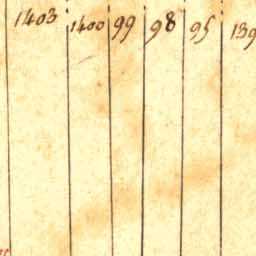 1403 1400 99 98 95 139